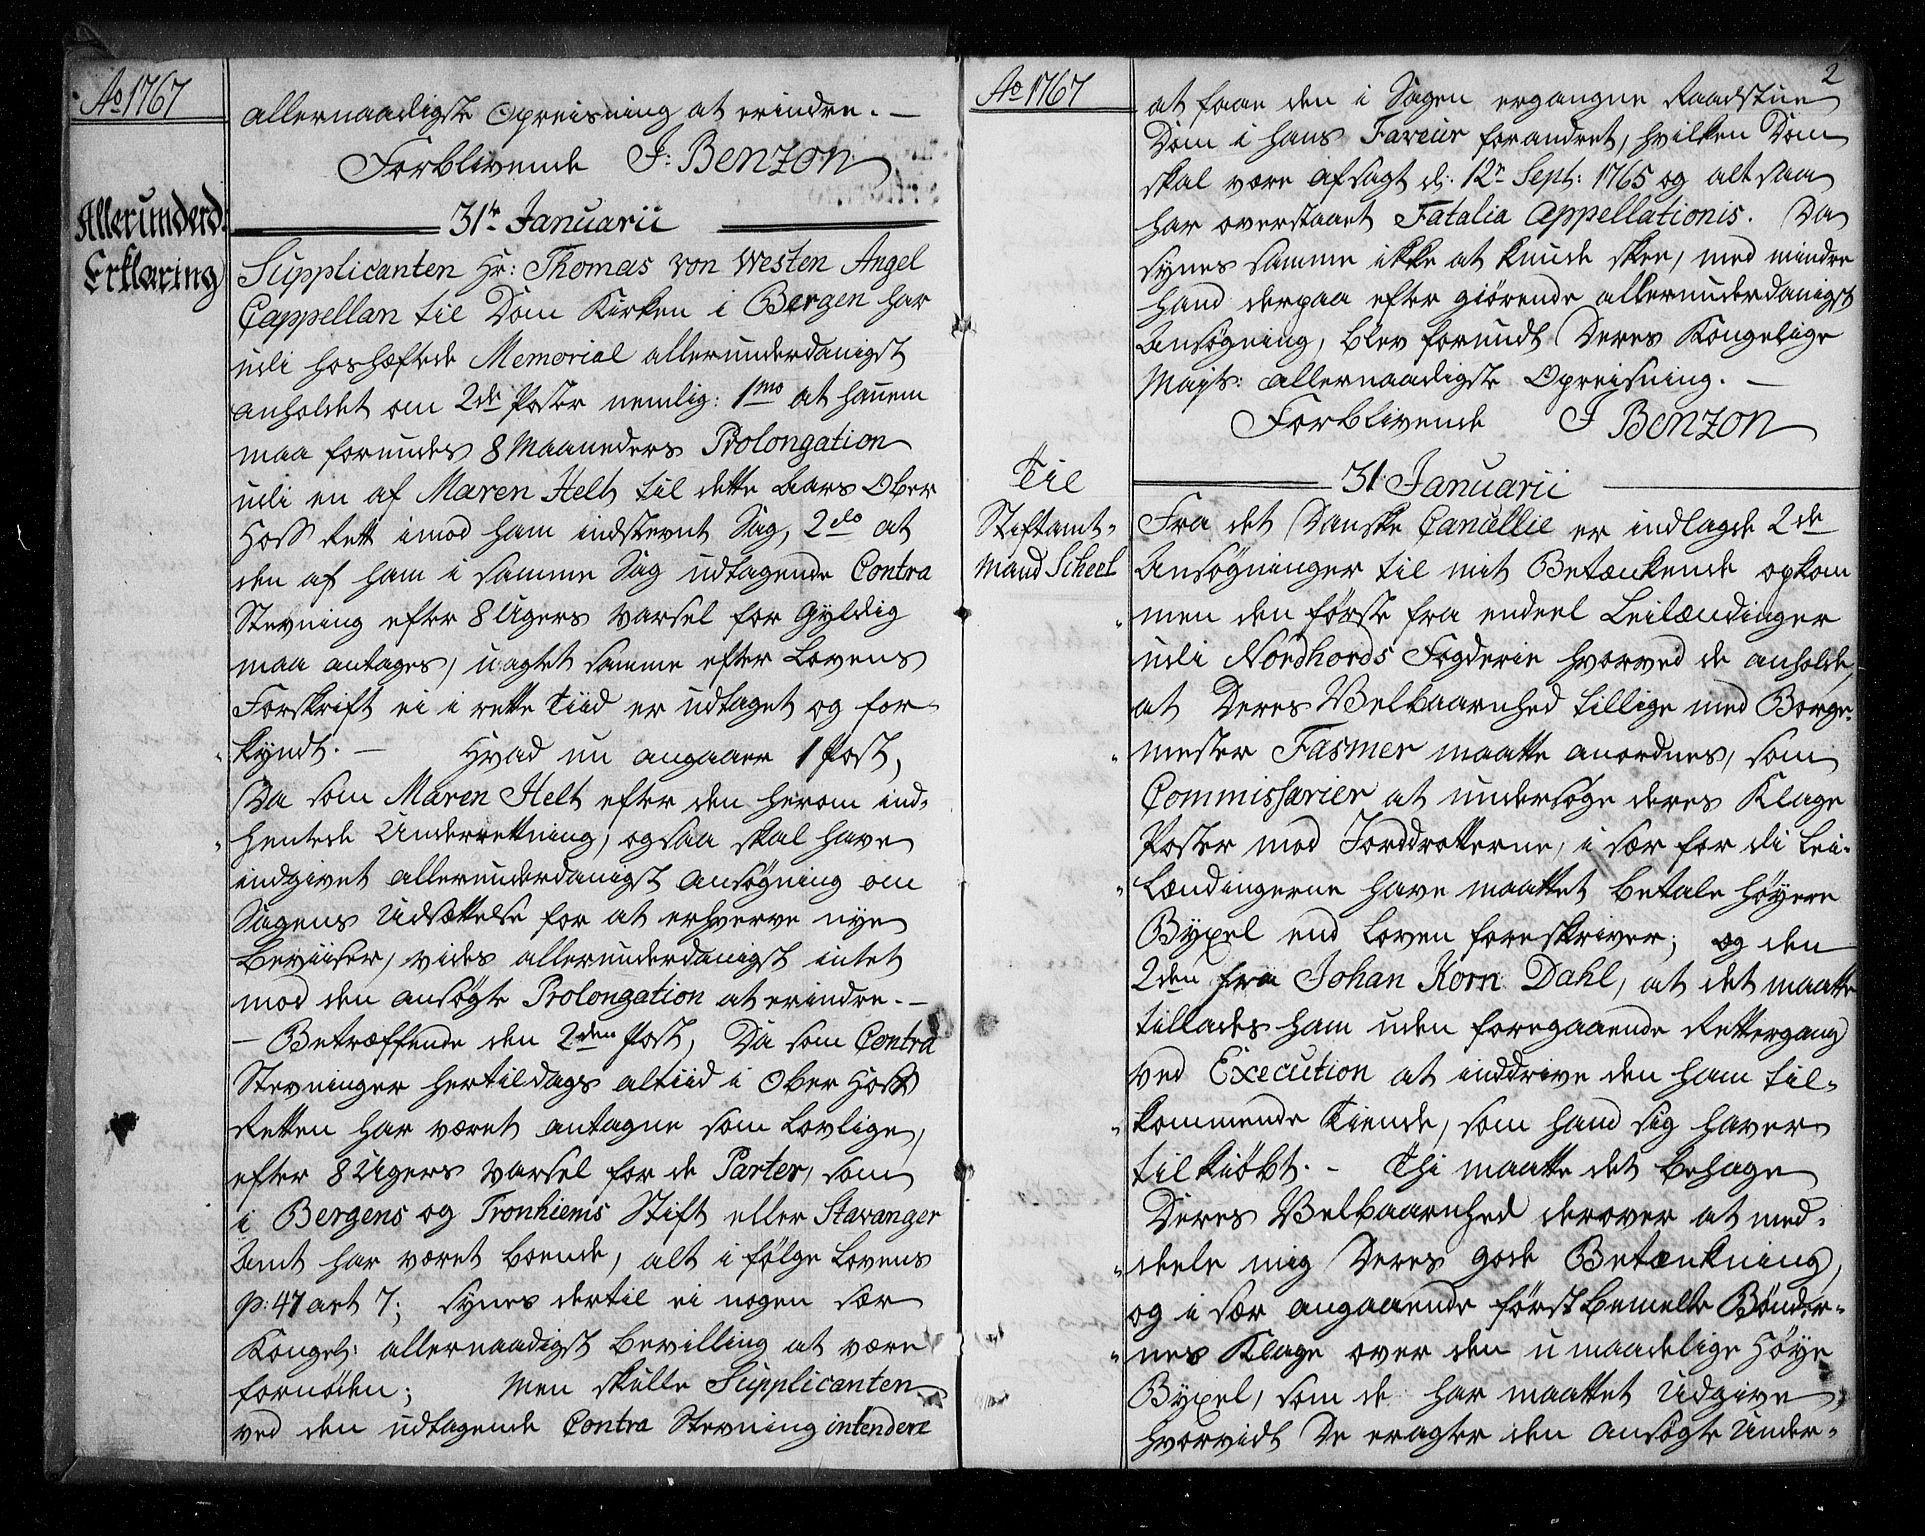 Ao 1767
allernaadigste Opreisning at erindre. —
Forblivende J: Benzon
Allerunderd:
Erklæring
31te Januarii
Supplicanten Hr: Thomas von Westen Angel
Cappellan til Dom Kirken i Bergen har
udi hoshæftede Memorial allerunderdanigst
anholdet om 2de Poster nemlig: 1mo at hannem
maa forundes 8 Maaneders Prolongation
udi en af Maren Helt til dette Aars Ober
Hoff Rett imod ham indstevnt Sag, 2do at
den af ham i samme Sag udtagende Contra
Stevning efter 8 Ugers Varsel for Gyldig
maa antages, uagtet samme efter Lovens
Forskrift ei i rette Tiid er udtaget og for-
kyndt. — Hvad nu angaaer 1 Post,
Da som Maren Helt efter den herom ind-
hentede Underrettning, ogsaa skal have
indgivet allerunderdanigst Ansøgning om
Sagens Udsættelse for at erhverve nye
Beviiser, vides allerunderdanigst intet
mod den ansøgte Prolongation at erindre. —
— Betræffende den 2den Post, Da som Contra
Stevninger hertildags altiid i Ober Hoff
Retten har været antagne som Lovlige,
efter 8 Ugers Varsel for de Parter, som
i Bergens og Tronhiems Stift eller Stavanger
Amt har været boende, alt i følge Lovens
p: 47 art 7; synes dertil ei nogen sær
Kongel: allernaadigst Bevilling at være
fornøden; Men skulle Supplicanten
ved den udtagende Contra Stevning intendere
Ao 1767
2
at faae den i Sagen ergangne Raadstue
Dom i hans Faveur forandret, hvilken Dom
skal være afsagt d: 12te Sept: 1765 og altsaa
har overstaaet Fatalia Appellationis. Da
synes samme ikke at kunde skee, med mindre
hand derpaa efter giørende allerunderdanigst
Ansøgning, blev forundt Deres Kongelige
Majts: allernaadigste Opreisning. —
Forblivende J Benzon
31 Januarii
Til
Stiftamt-
mand Scheel
Fra det Danske Cancellie er indlagde 2de
Ansøgninger til mit Betænkende opkom
men den første fra endeel Leilændinger
udi Nordhords Fogderie hvorved de anholde,
at Deres Velbaarnhed tillige med Borge-
mester Fasmer maatte anordnes, som
Commissarier at undersøge deres Klage
Poster mod Jorddrotterne, i sær for di Lei-
lændingerne have maattet betale høyere
Byxel end Loven foreskriver; og den
2den fra Johan Korn Dahl, at det maatte
tillades ham uden foregaaende Rettergang
ved Execution at inddrive den ham til-
kommende Tiende, som hand sig haver
tilkiøbt. - Thi maatte det behage
Deres Velbaarnhed derover at med-
dele mig Deres gode Betænkning,
og i sær angaaende først bemelte Bønder-
nes Klage over den umaadelige Høye
Byxel, som de har maattet Udgive
hvorvidt De eragter den ansøgte Under-